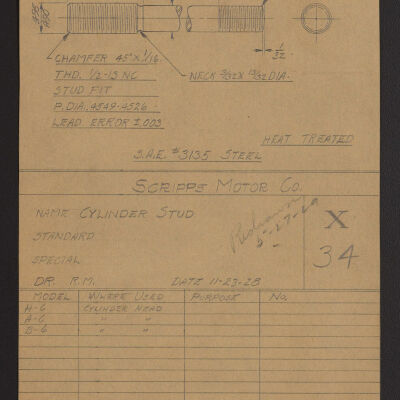 CHAMFER 45° X 1/16
THD. 1/2-13 NC
STUD FIT
P. DIA. .4549-.4526
LEAD ERROR ±.003
NECK 3/32 X 13/32 DIA.
1/32
HEAT TREATED
S.A.E. #3135 STEEL
SCRIPPS MOTOR CO.
NAME CYLINDER STUD
STANDARD
SPECIAL
Redrawn
X
34
DR. R.M. DATE 11-23-28
MODEL WHERE USED PURPOSE NO.
H-6 CYLINDER HEAD
A-6 " "
B-6 " "